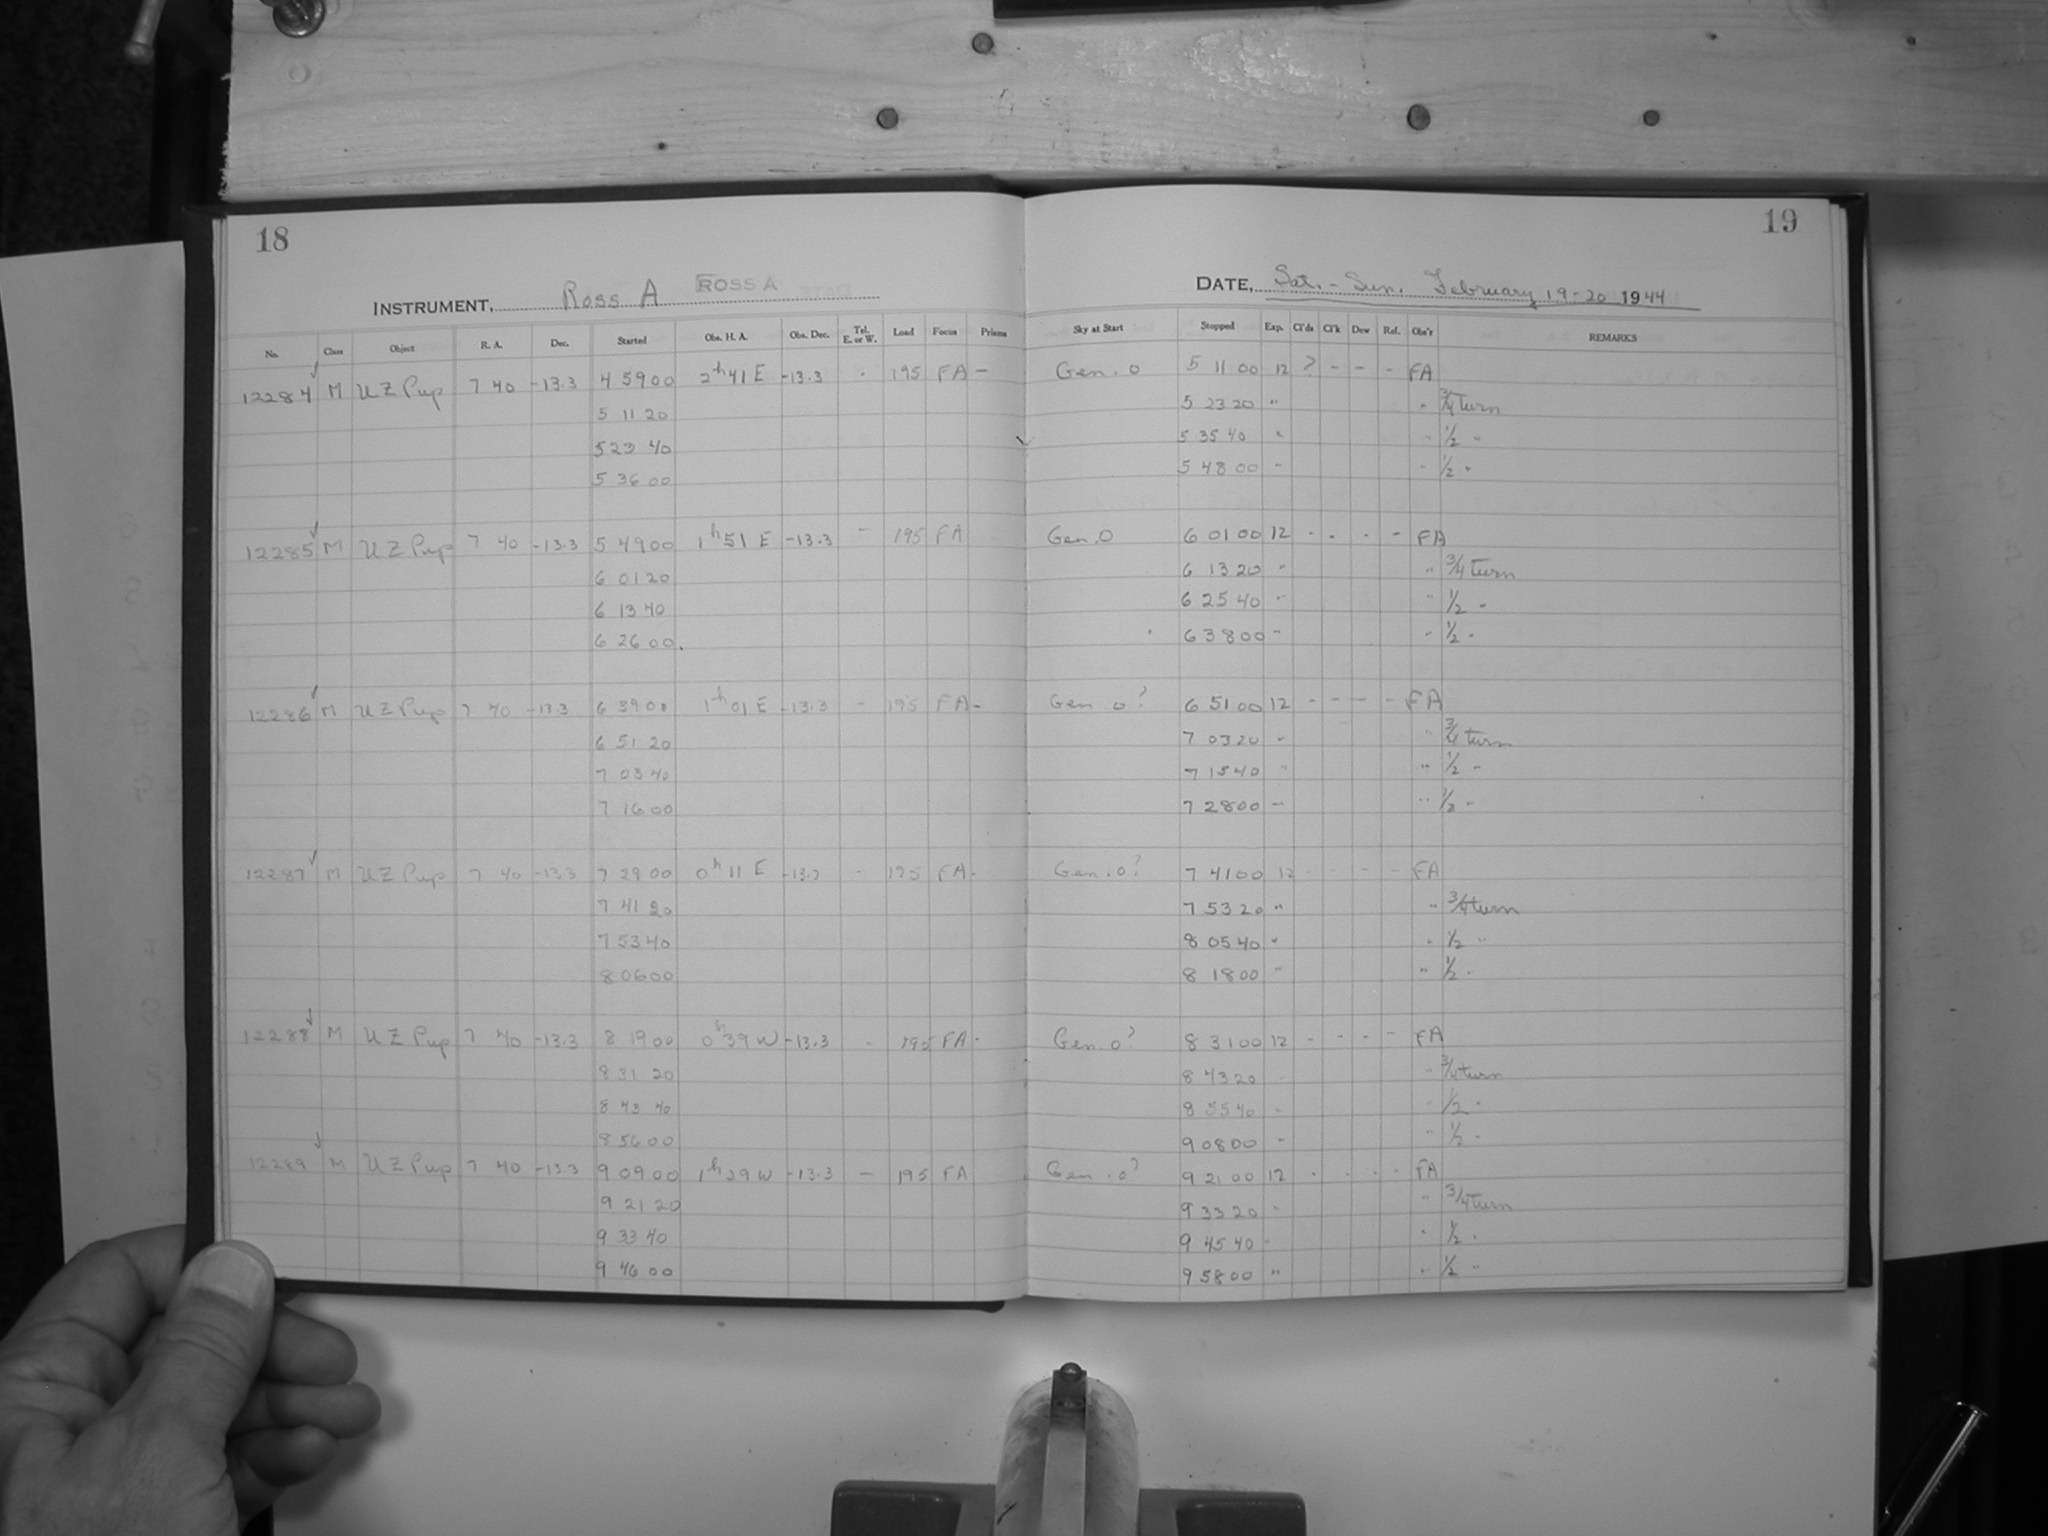 18
INSTRUMENT, Ross A ROSS A
No. Class Object R. A. Dec. Started Obs. H. A. Obs. Dec. Tel. E. or W. Load Focus Prisms
12284 M UZ Pup 7 40 -13.3 4 59 00 2h 41 E -13.3 - 195 FA -
5 11 20
5 23 40
5 36 00
12285 M UZ Pup 7 40 -13.3 5 49 00 1h 51 E -13.3 - 195 FA
6 01 20
6 13 40
6 26 00.
12286 M UZ Pup 7 40 -13.3 6 39 00 1h 01 E -13.3 - 195 FA -
6 51 20
7 03 40
7 16 00
12287 M UZ Pup 7 40 -13.3 7 29 00 0h 11 E -13.3 - 195 FA -
7 41 20
7 53 40
8 06 00
12288 M UZ Pup 7 40 -13.3 8 19 00 0h 39 W -13.3 - 195 FA -
8 31 20
8 43 40
8 56 00
12289 M UZ Pup 7 40 -13.3 9 09 00 1h 29 W -13.3 - 195 FA
9 21 20
9 33 40
9 46 00
19
DATE, Sat. - Sun. February 19-20 1944
Sky at Start Stopped Exp. Cl'ds Cl'k Dew Ref. Obs'r REMARKS
Gen. 0 5 11 00 12 ? - - - FA
5 23 20 " " 3/4 turn
5 35 40 " " 1/2 "
5 48 00 " " 1/2 "
Gen. 0 6 01 00 12 - - - - FA
6 13 20 " " 3/4 turn
6 25 40 " " 1/2 "
6 38 00 " " 1/2 "
Gen. 0? 6 51 00 12 - - - - FA
7 03 20 " " 3/4 turn
7 15 40 " " 1/2 "
7 28 00 " " 1/2 "
Gen. 0? 7 41 00 12 - - - - FA
7 53 20 " " 3/4 turn
8 05 40 " " 1/2 "
8 18 00 " " 1/2 "
Gen. 0? 8 31 00 12 - - - - FA
8 43 20 " " 3/4 turn
8 55 40 " " 1/2 "
9 08 00 " " 1/2 "
Gen. 0? 9 21 00 12 - - - - FA
9 33 20 " " 3/4 turn
9 45 40 " " 1/2 "
9 58 00 " " 1/2 "